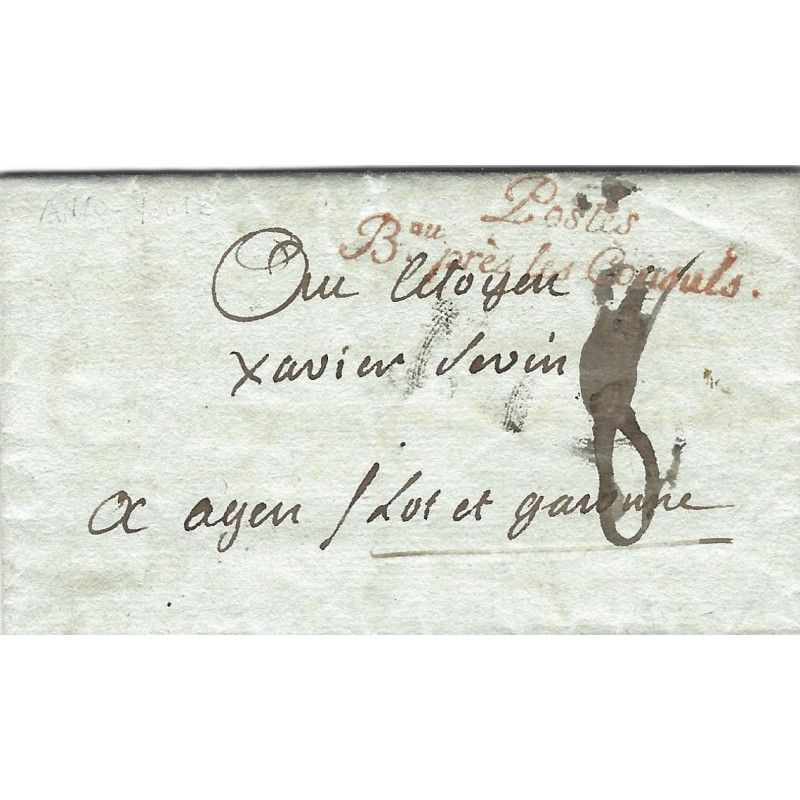 Postes
Bau près les Consuls.
Au Citoyen
xavier sevin
a agen / Lot et garonne
8